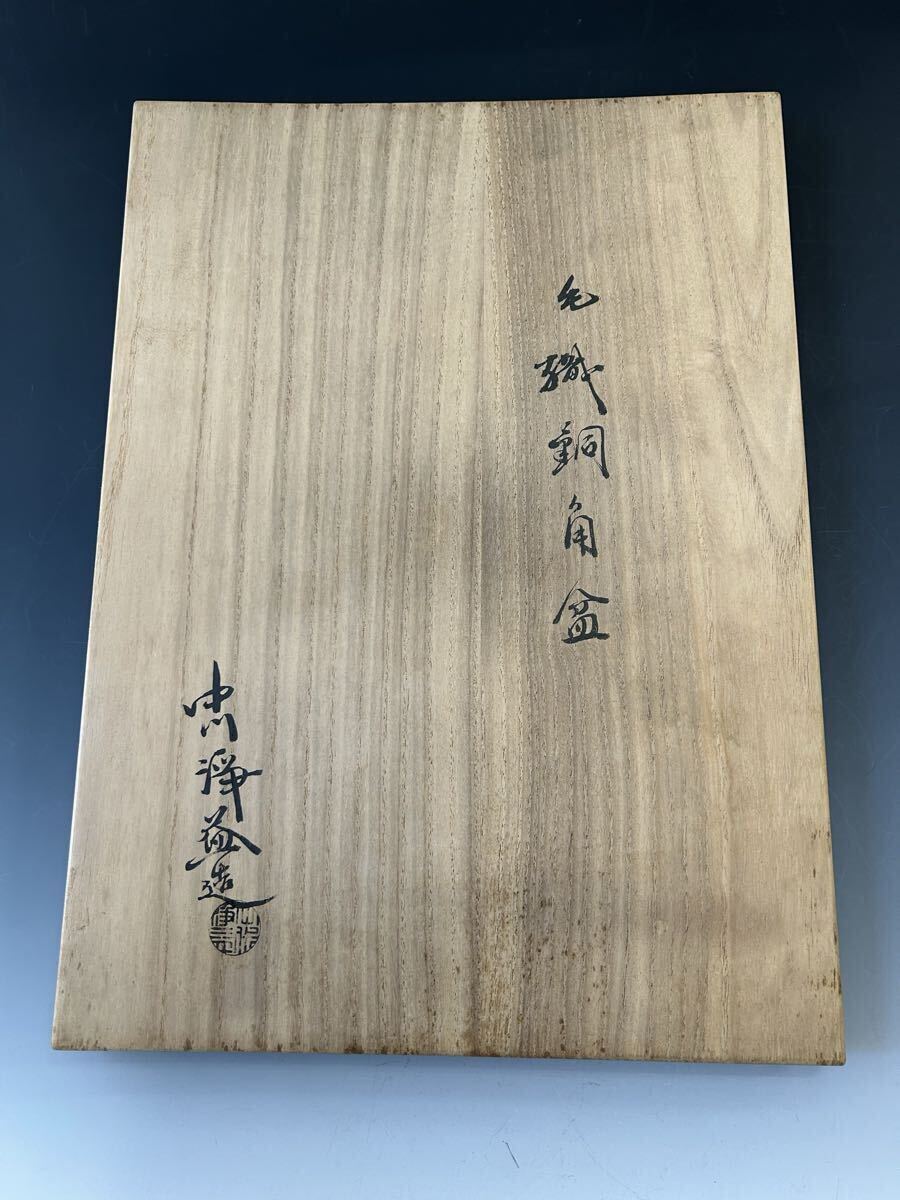 毛織銅角盆
中川浄益造